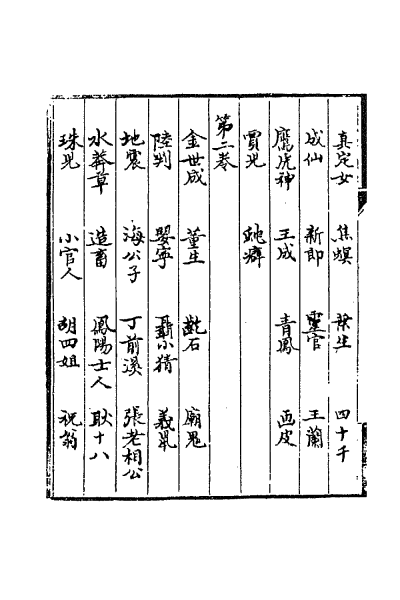 真定女　焦螟　葉生　四十千
成仙　新郎　靈官　王蘭
鷹虎神　王成　青鳳　画皮
賈児　蛇癖
第二卷
金世成　董生　齕石　廟鬼
陸判　嬰寧　聶小猜　義鼠
地震　海公子　丁前溪　張老相公
水莽草　造畜　鳳陽士人　耿十八
珠児　小官人　胡四姐　祝翁